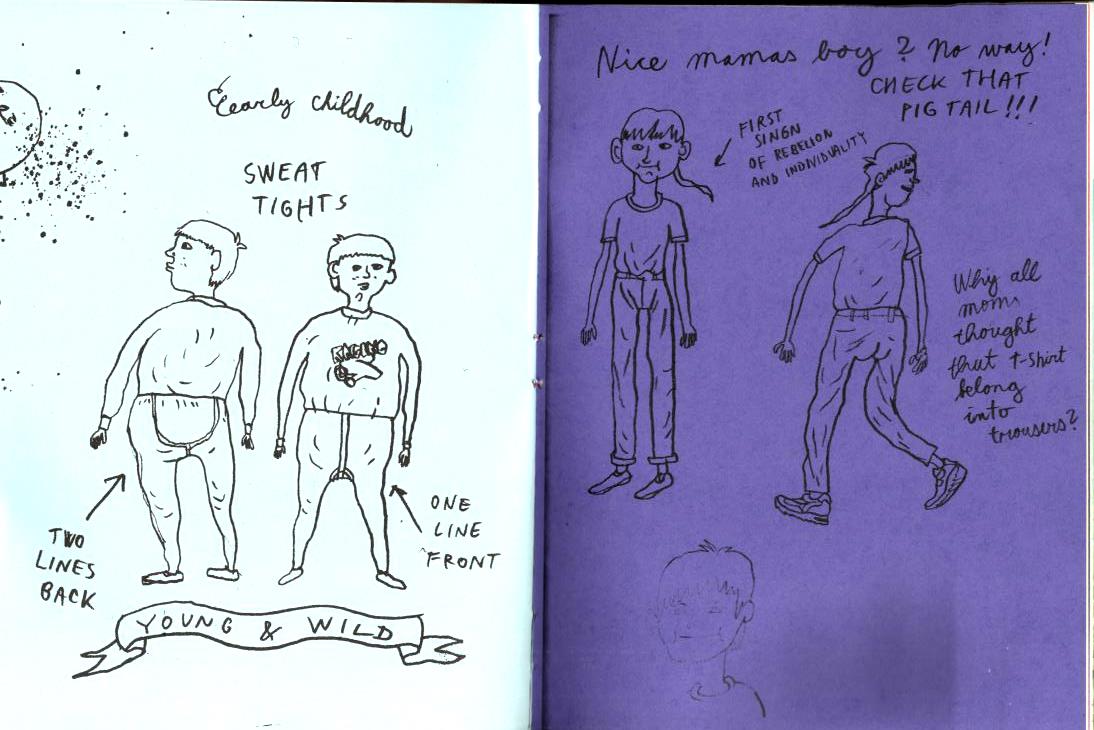 Eearly childhood
SWEAT
TIGHTS
RACING
TWO
LINES
BACK
ONE
LINE
FRONT
YOUNG & WILD
Nice mamas boy? No way!
CHECK THAT
PIG TAIL!!!
FIRST
SINGN
OF REBELION
AND INDIVIDUALITY
Why all
moms
thought
that T-shirt
belong
into
trousers?